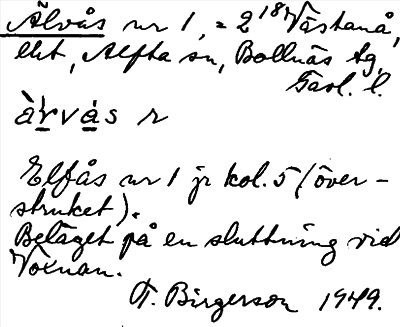 Älvås nr 1, = 2¹⁸ Västanå,
ekt, Alfta sn, Bollnäs tg,
Gävl. l.
àrvás r
Elfås nr 1 jr kol. 5 (över-
struket).
Beläget på en sluttning vid
Voxnan.
T. Birgerson 1949.